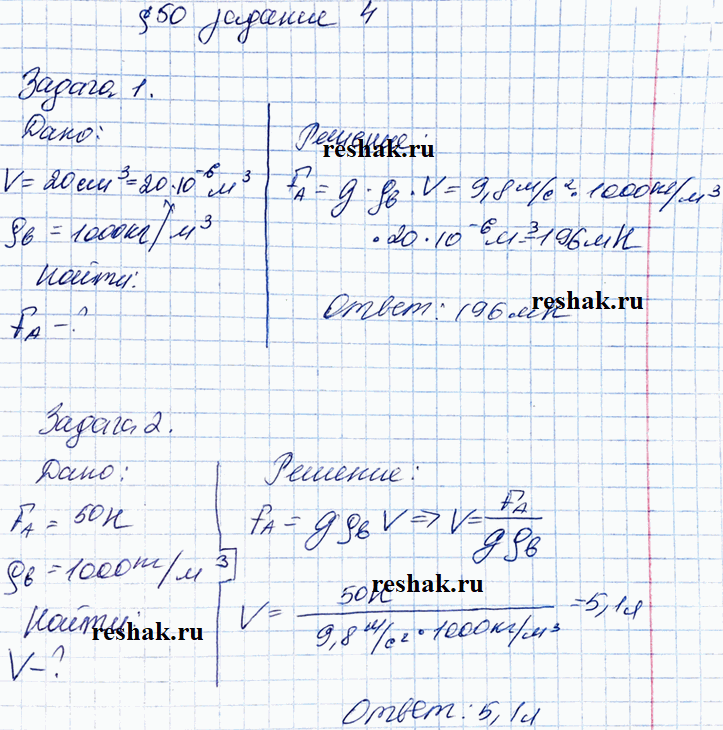 §50 задание 4
Задача 1.
Дано:
V = 20 см³ = 20·10⁻⁶ м³
ρв = 1000 кг/м³
Найти:
FA - ?
Решение:
reshak.ru
FA = g · ρв · V = 9,8 м/с² · 1000 кг/м³
· 20 · 10⁻⁶ м³ = 196 мН
Ответ: 196 мН
reshak.ru
Задача 2.
Дано:
FA = 50 Н
ρв = 1000 кг/м³
Найти:
reshak.ru
V - ?
Решение:
FA = gρвV => V = FA/gρв
reshak.ru
V = 50 Н / 9,8 м/с² · 1000 кг/м³ = 5,1 л
Ответ: 5,1 л